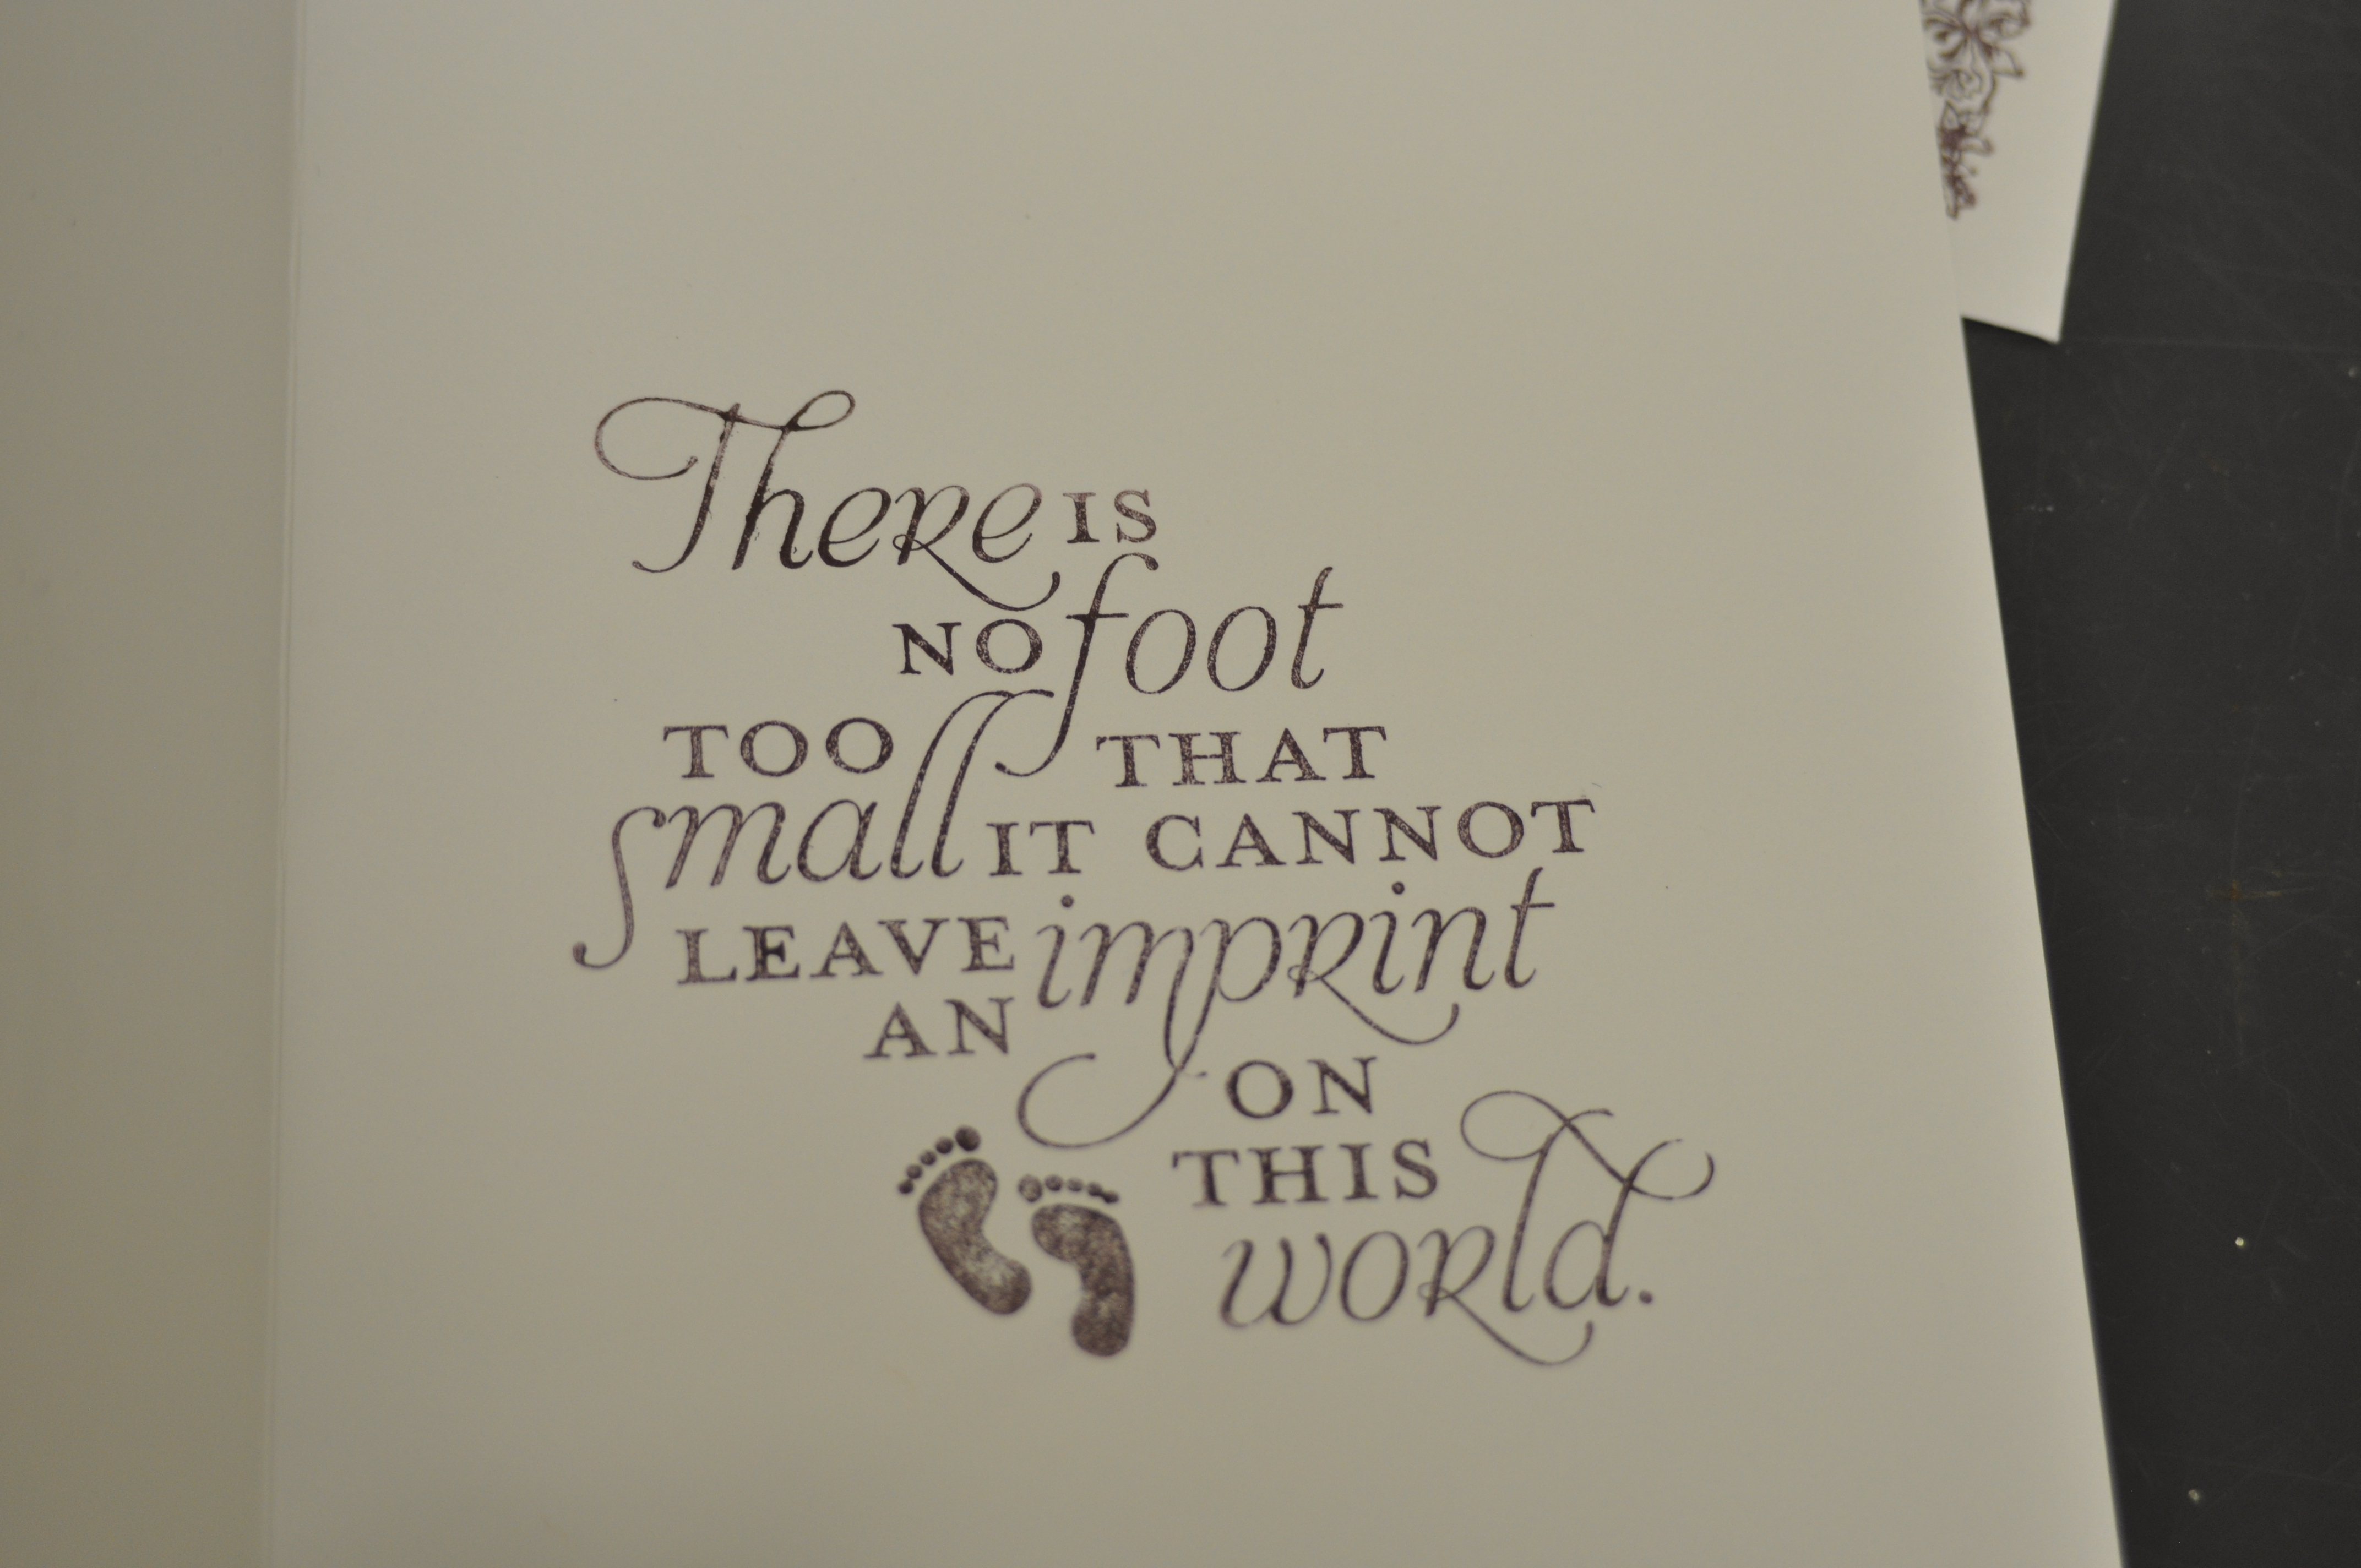 There IS
NO foot
TOO small THAT
IT CANNOT
LEAVE AN imprint
ON
THIS world.